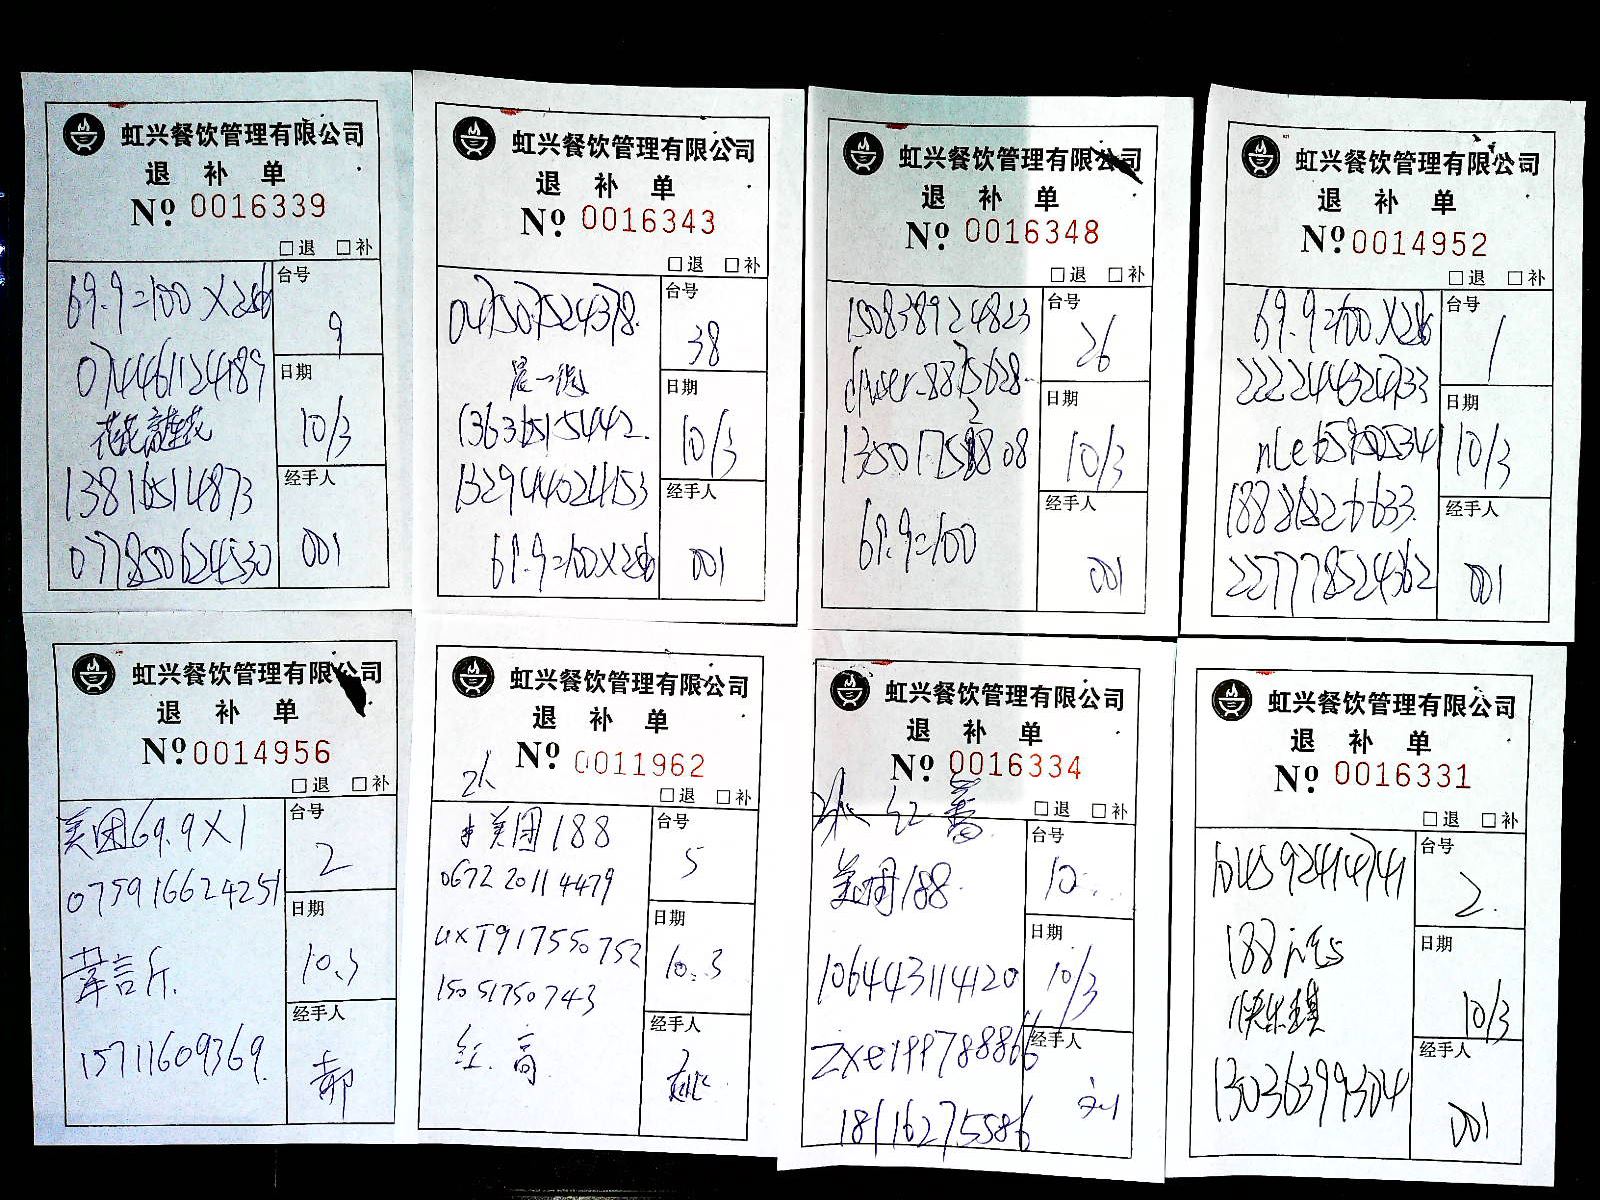 虹兴餐饮管理有限公司
退 补 单
Nº 0016339
□退 □补
69.9=100 X2张
台号
9
074461124189
日期
10/3
13816514873
经手人
077850624530
001
虹兴餐饮管理有限公司
退 补 单
Nº 0016343
□退 □补
台号
047507524378.
38
日期
13636515442.
10/3
132944024153
经手人
69.9=100X2张
001
虹兴餐饮管理有限公司
退 补 单
Nº 0016348
□退 □补
150838924823
台号
26
日期
10/3
经手人
69.9=100
001
虹兴餐饮管理有限公司
退 补 单
Nº 0014952
□退 □补
69.9=100 X2张
台号
1
222244324733
日期
10/3
18821826633.
经手人
227778524362
001
虹兴餐饮管理有限公司
退 补 单
Nº 0014956
□退 □补
美团69.9X1
台号
2
075916624251
日期
10.3
15711609369.
经手人
郭
虹兴餐饮管理有限公司
退 补 单
Nº 0011962
□退 □补
美团188
台号
5
0672 2011 4479
日期
uxT917550752
10.3
15051750743
经手人
红.高
姚
虹兴餐饮管理有限公司
退 补 单
Nº 0016334
□退 □补
台号
美团188
12
日期
106443114120
10/3
经手人
zxe199788866
18116275586
刘
虹兴餐饮管理有限公司
退 补 单
Nº 0016331
□退 □补
104592414741
台号
2.
188
日期
快乐琪
10/3
经手人
13036399304
001